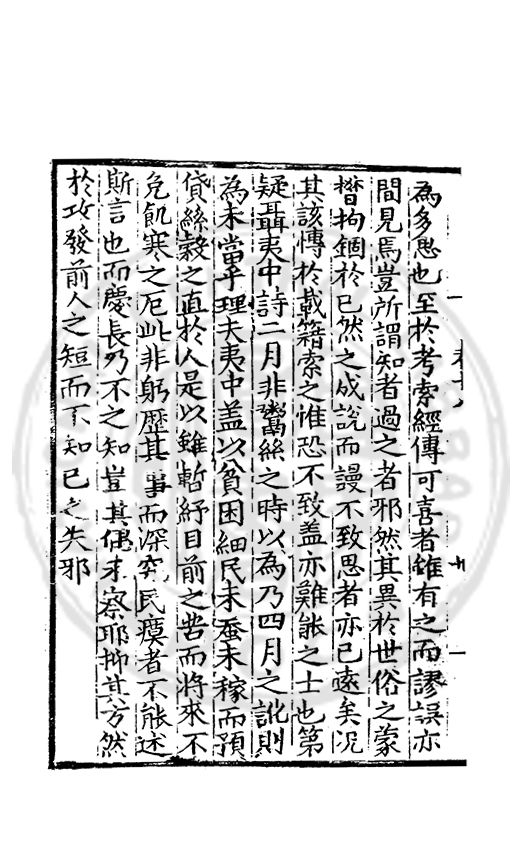 為多思也至於考索經傳可喜者雖有之而謬誤亦
間見焉豈所謂知者過之者邪然其異於世俗之蒙
瞀拘錮於已然之成說而謾不致思者亦已遠矣况
其該博於載籍索之惟恐不致盖亦難能之士也第
疑聶夷中詩二月非鬻絲之時以為乃四月之訛則
為未當乎理夫夷中盖以貧困細民未蚕未稼而預
貸絲穀之直於人是以雖暫紓目前之苦而將來不
免飢寒之厄此非躬歷其事而深究民瘼者不能述
斯言也而慶長乃不之知豈其偶未察耶抑其方然
於攻發前人之短而不知己之失邪